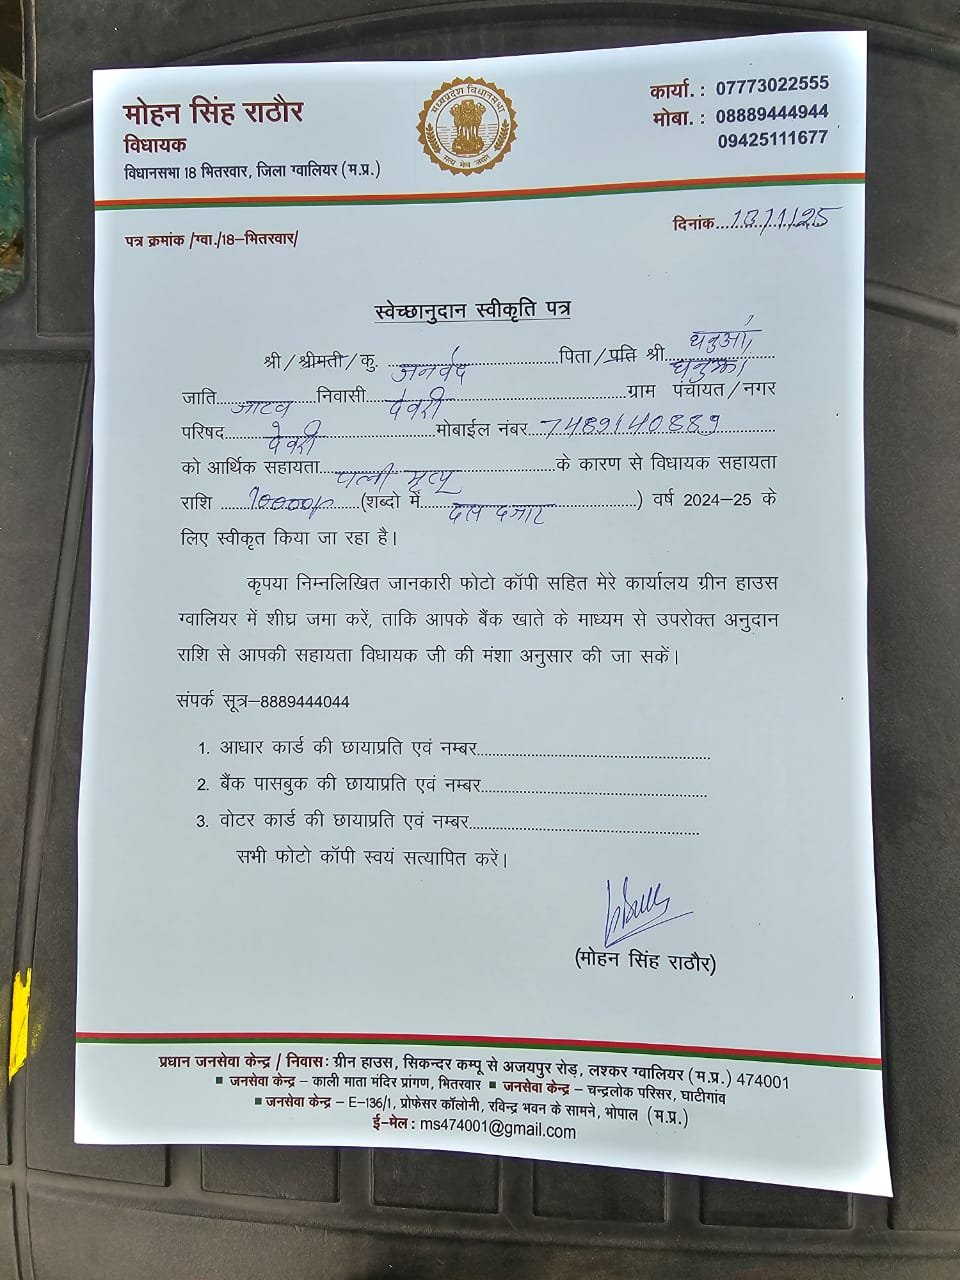 मोहन सिंह राठौर
विधायक
विधानसभा 18 भितरवार, जिला ग्वालियर (म.प्र.)
मध्यप्रदेश विधानसभा
सत्य मेव जयते
कार्या. : 07773022555
मोबा. : 08889444944
09425111677
पत्र क्रमांक /ग्वा./18–भितरवार/
दिनांक 13/1/25
स्वेच्छानुदान स्वीकृति पत्र
श्री / श्रीमती / कु. जनवेद पिता / प्रति श्री
जाति जाटव निवासी देवरी ग्राम पंचायत / नगर
परिषद देवरी मोबाईल नंबर 7489140889
को आर्थिक सहायता पत्नी मृत्यू के कारण से विधायक सहायता
राशि 10000/- (शब्दो में दस हजार) वर्ष 2024–25 के
लिए स्वीकृत किया जा रहा है।
कृपया निम्नलिखित जानकारी फोटो कॉपी सहित मेरे कार्यालय ग्रीन हाउस
ग्वालियर में शीघ्र जमा करें, ताकि आपके बैंक खाते के माध्यम से उपरोक्त अनुदान
राशि से आपकी सहायता विधायक जी की मंशा अनुसार की जा सकें।
संपर्क सूत्र–8889444044
1. आधार कार्ड की छायाप्रति एवं नम्बर
2. बैंक पासबुक की छायाप्रति एवं नम्बर
3. वोटर कार्ड की छायाप्रति एवं नम्बर
सभी फोटो कॉपी स्वयं सत्यापित करें।
(मोहन सिंह राठौर)
प्रधान जनसेवा केन्द्र / निवास : ग्रीन हाउस, सिकन्दर कम्पू से अजयपुर रोड़, लश्कर ग्वालियर (म.प्र.) 474001
▪ जनसेवा केन्द्र – काली माता मंदिर प्रांगण, भितरवार ▪ जनसेवा केन्द्र – चन्द्रलोक परिसर, घाटीगांव
▪ जनसेवा केन्द्र – E-136/1, प्रोफेसर कॉलोनी, रविन्द्र भवन के सामने, भोपाल (म.प्र.)
ई–मेल : ms474001@gmail.com